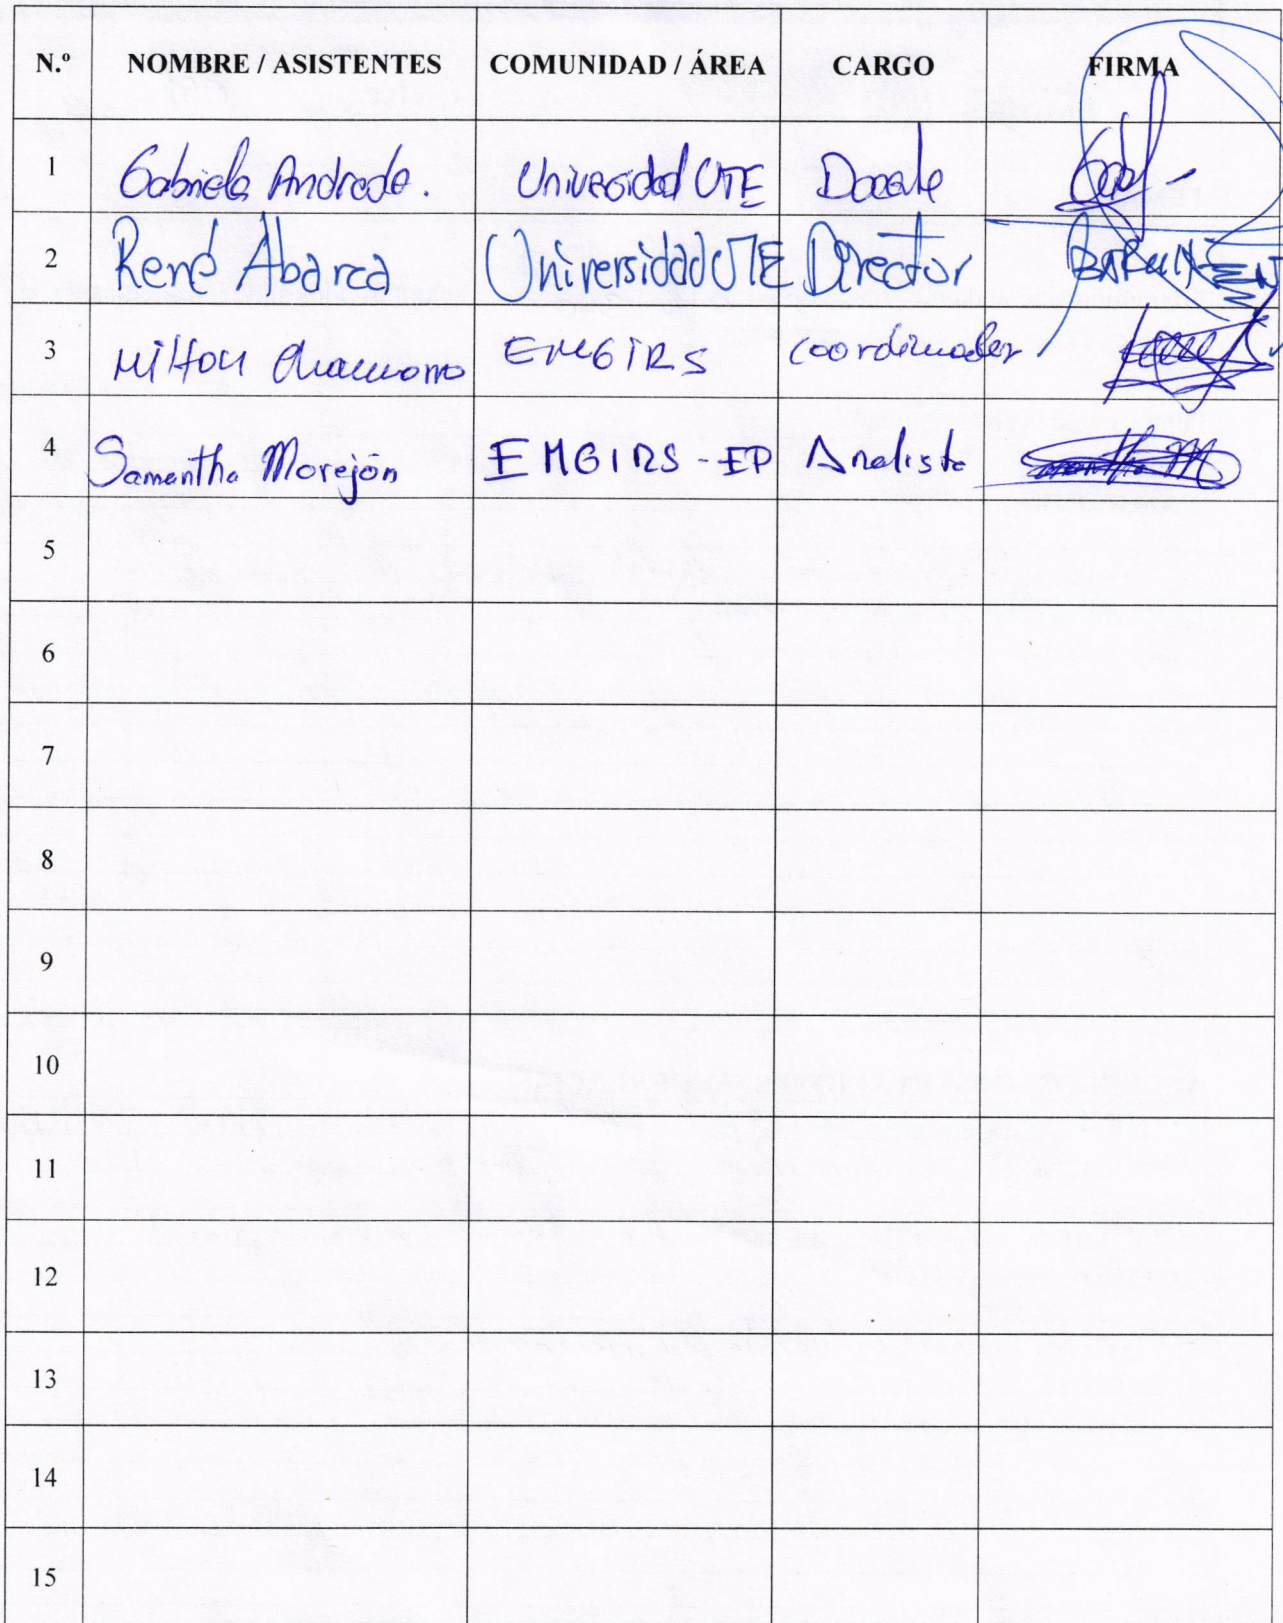 N.º NOMBRE / ASISTENTES COMUNIDAD / ÁREA CARGO FIRMA
1 Gabriela Andrade. Universidad UTE Docente
2 René Abarca Universidad UTE Director
3 Milton Chamorro EMGIRS Coordinador
4 Samantha Morejón EMGIRS-EP Analista
5
6
7
8
9
10
11
12
13
14
15